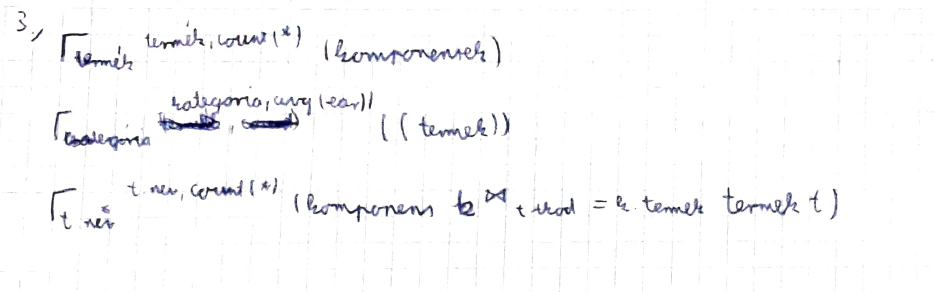 3,
Γ termék termék, count(*) (komponensek)
Γ kategória kategoria, avg(ear)) ((termek))
Γ t név t. nev, count(*) (komponens k ⋈ t.kod = k. termek termek t)